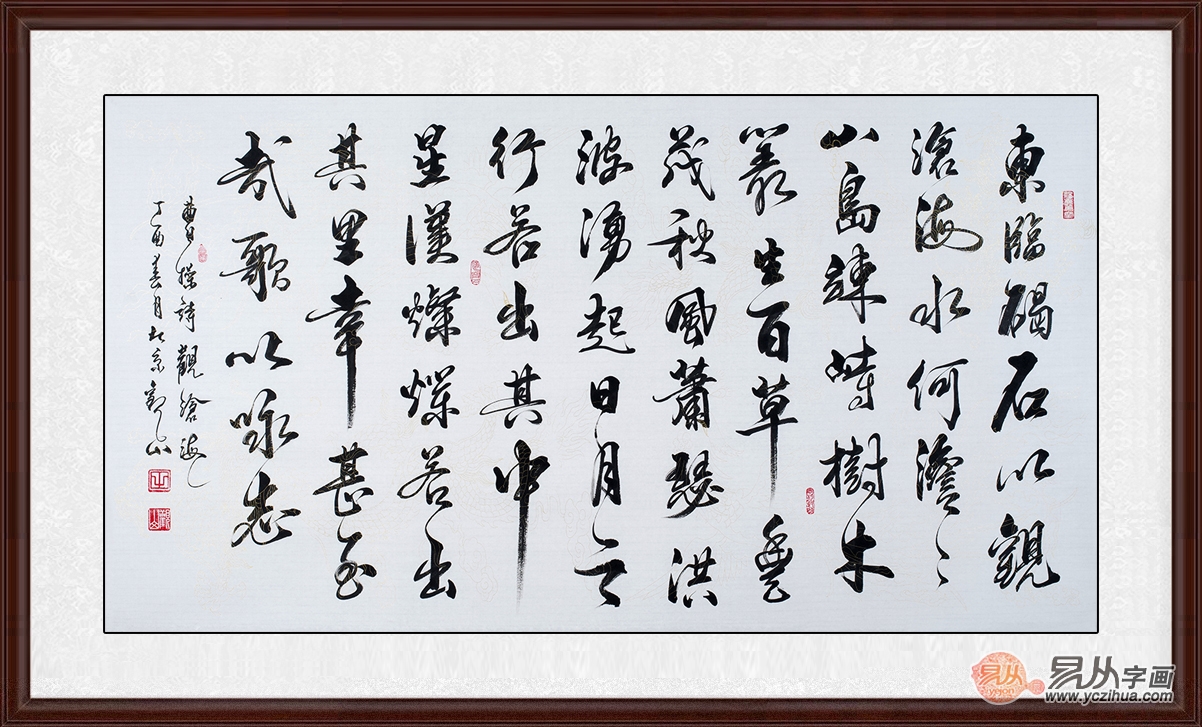 東臨碣石以觀
滄海水何澹〻
山島竦峙樹木
叢生百草豐
茂秋風蕭瑟洪
波湧起日月之
行若出其中
星漢燦爛若出
其里幸甚至
哉歌以詠志
曹操詩觀滄海
丁酉春月北京觀山
觀山
易从
易从字画
www.yczihua.com